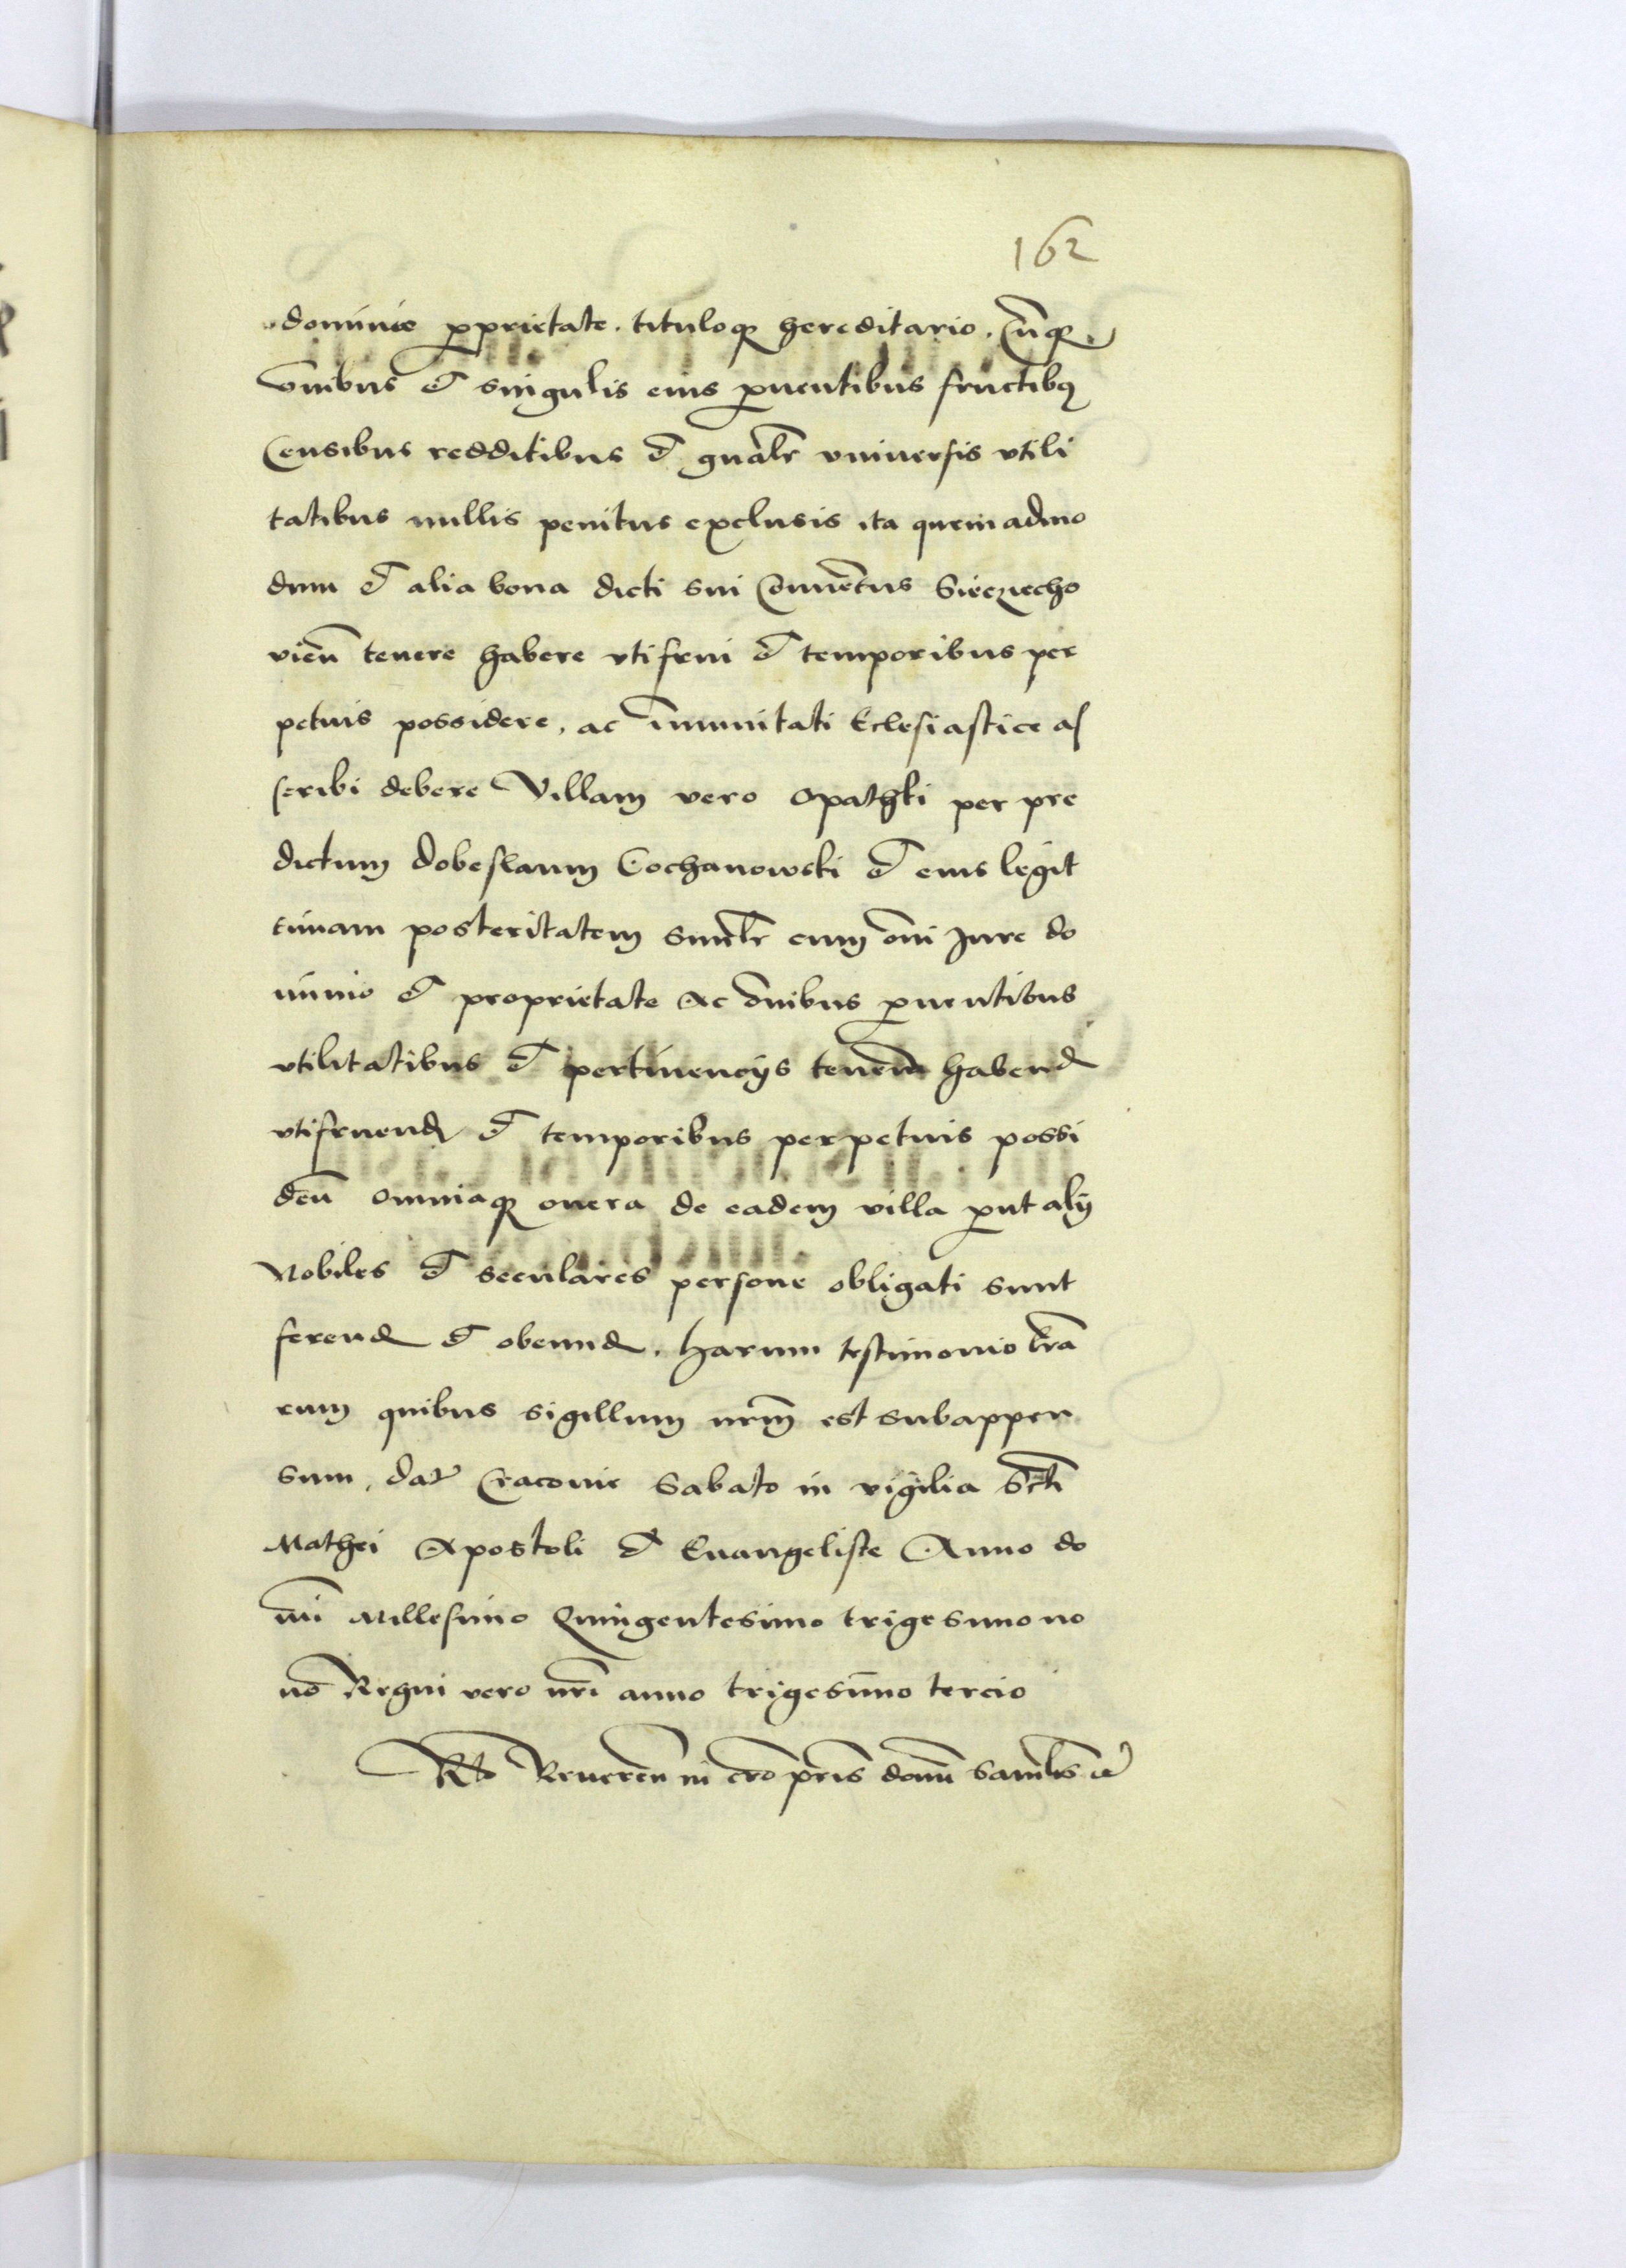 162
dominio ꝓprietate. tituloqꝫ hereditario. Cūqꝫ
om̄ibus et singulis eius ꝓuentibus fructibꝫ
Censibus redditibus et gn̄alr̄ vniuersis vtili
tatibus nullis penitus exclusis ita quemadmo
dum et alia bona dicti sui Conuētus Sieczecho
vień tenere habere vtifrui et temporibus per
petuis possidere, ac im̄unitati Eclesiastice as
scribi debere Villam vero Opathki per pre
dictum dobeslaum Cochanowski et eius legit
timam posteritatem simlr̄ cum om̄i Jure do
minio et proprietate Ac om̄ibus ꝓuentibus
vtilitatibus et pertinencijs teneñ habend
vtifruend et temporibus perpetuis possi
deñ omniaqꝫ onera de eadem villa ꝓut alij
Nobiles et seculares persone obligati sunt
ferend et obeund. harum testimonio lr̄a
rum quibus sigillum nr̄m est subappen
sum, dat Cracouie Sabato in vigilia Scti
Mathei Apostoli et Euangeliste Anno do
mī Millesimo Quingentesimo trigesimo no
nō Regni vero nr̄i anno trigesimo tercio
Rło Reueren in xr̄o pr̄is dom̄